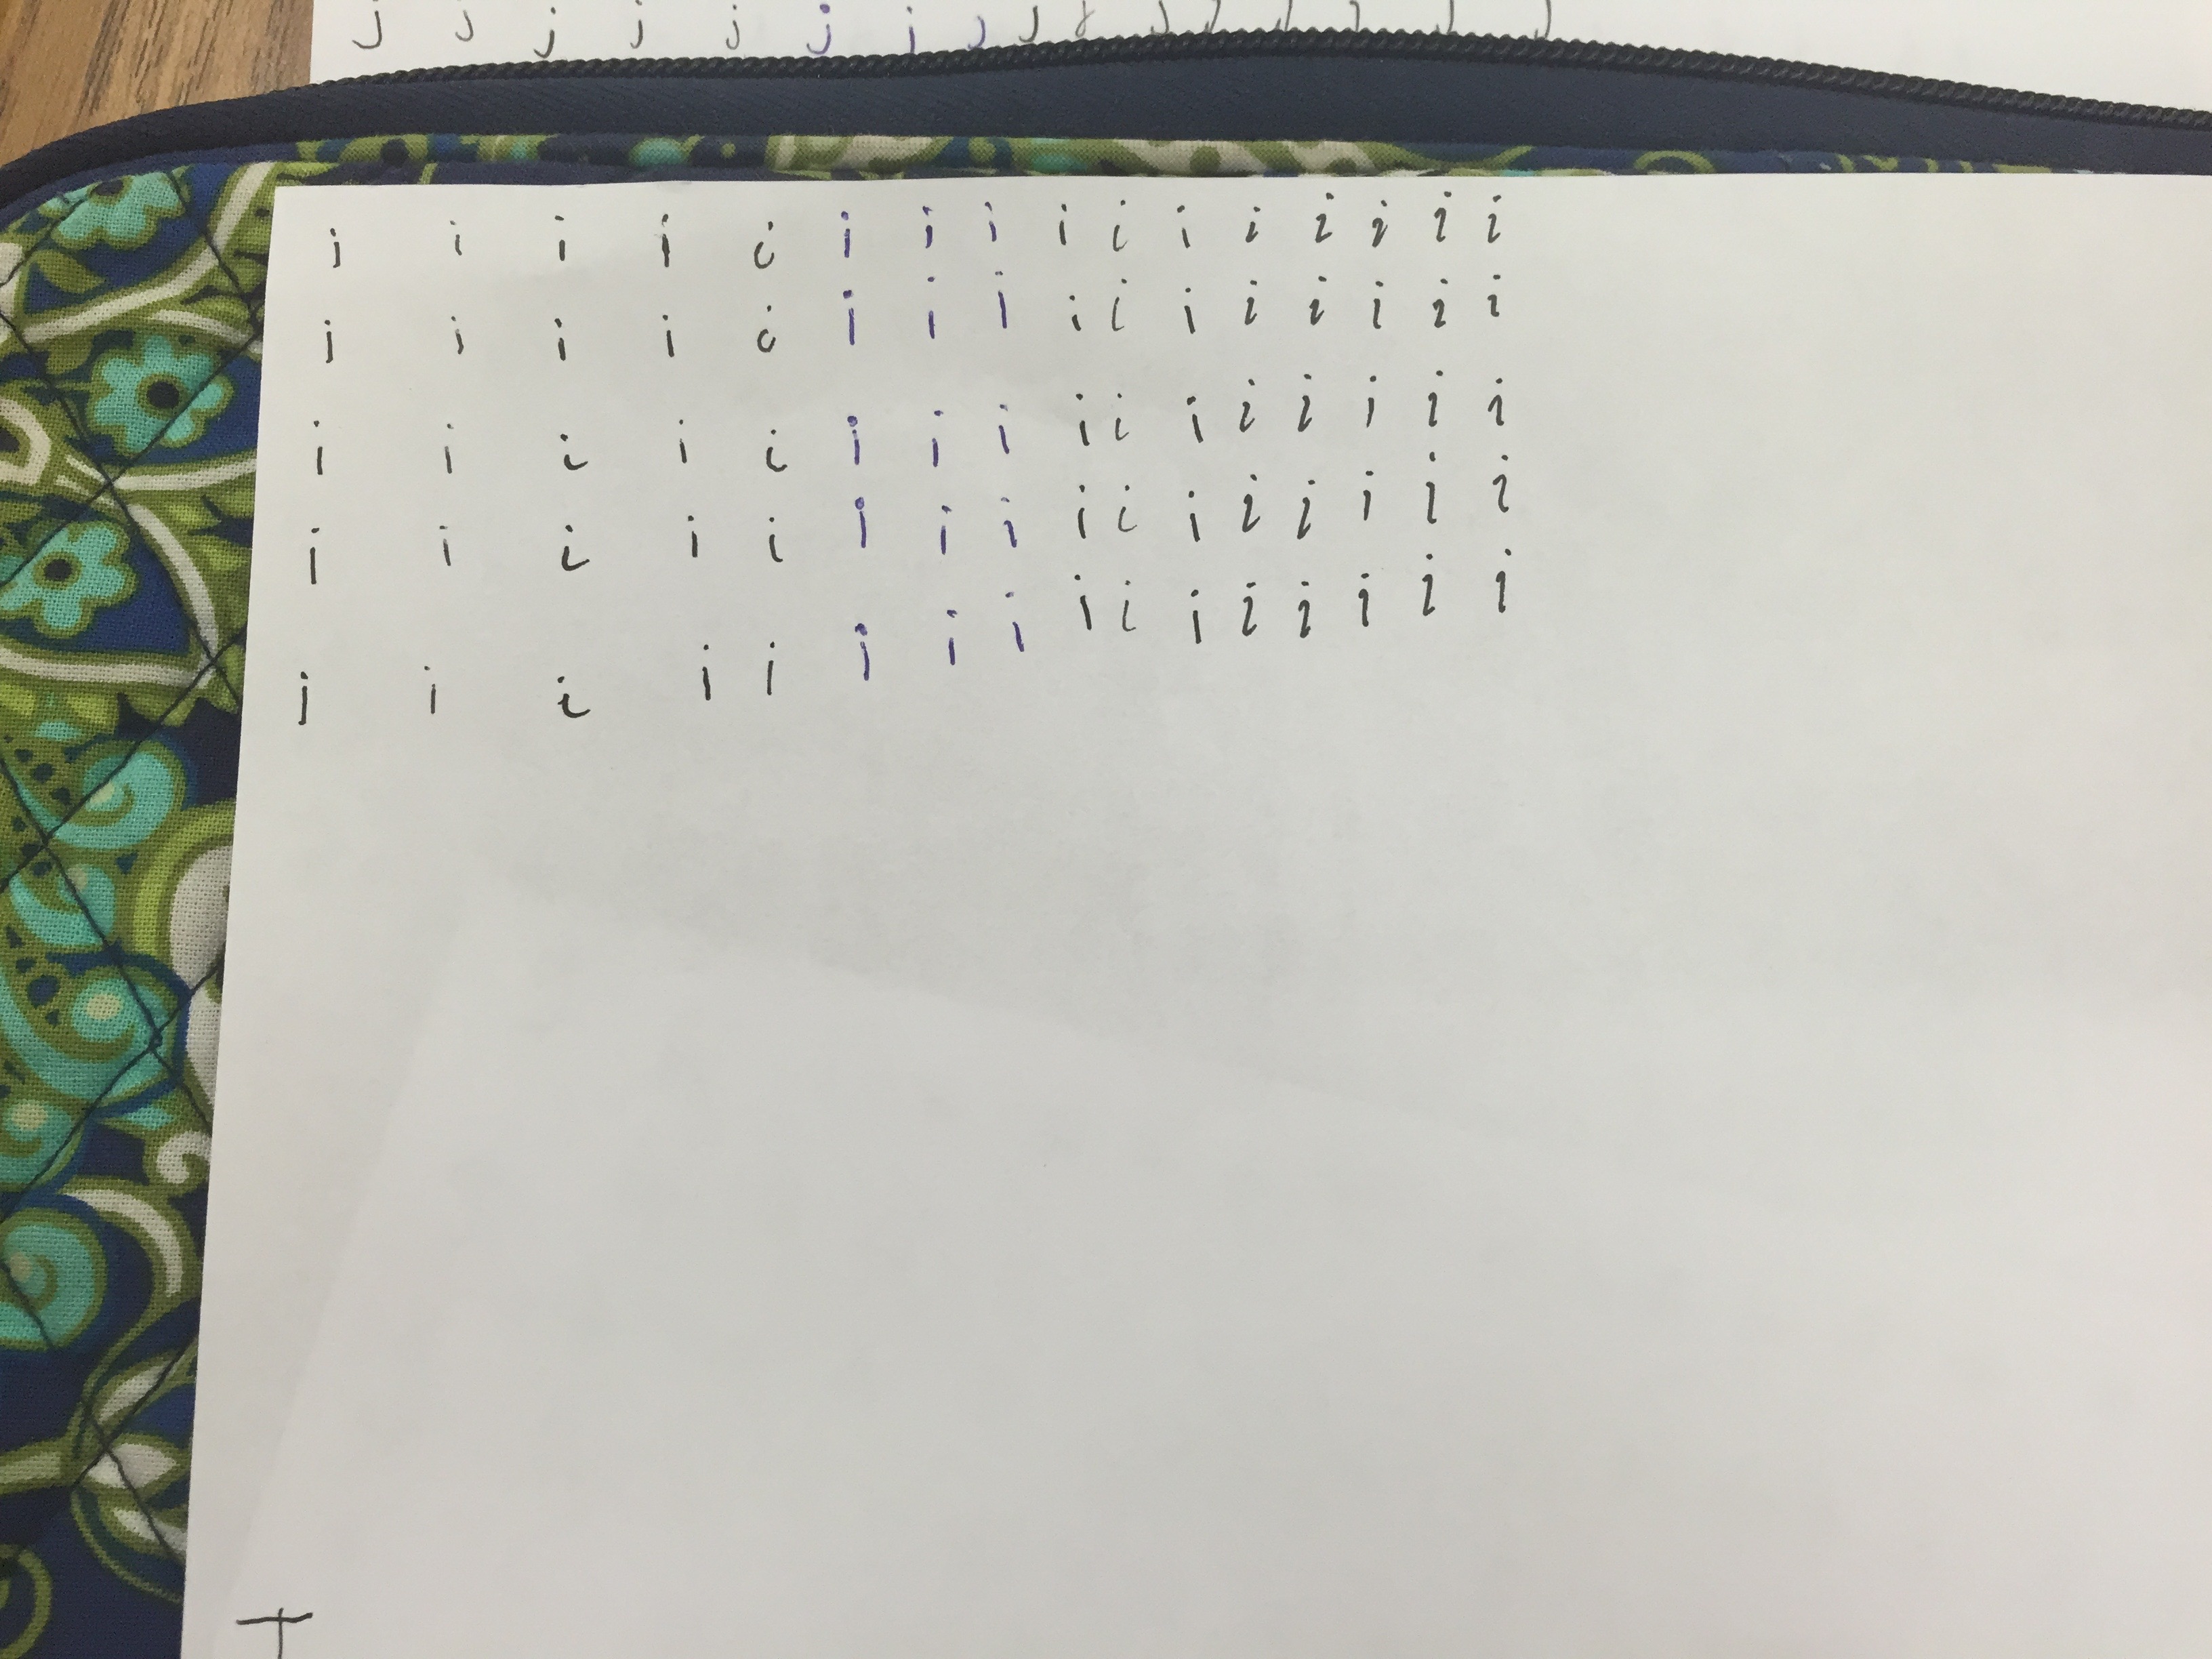 j j j j j j j j j j j j j j j j
i i i i i i i i i i i i i i i i
i i i i i i i i i i i i i i i i
i i i i i i i i i i i i i i i i
i i i i i i i i i i i i i i i i
i i i i i i i i i i i i i i i i